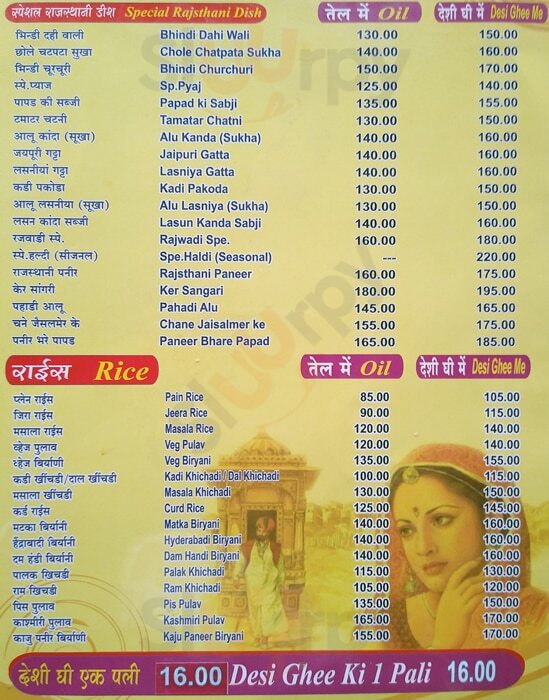 स्पेशल राजस्थानी डीश Special Rajsthani Dish तेल में Oil देशी घी में Desi Ghee Me
भिन्डी दही वाली Bhindi Dahi Wali 130.00 150.00
छोले चटपटा सुखा Chole Chatpata Sukha 140.00 160.00
भिन्डी चूरचूरी Bhindi Churchuri 150.00 170.00
स्पे.प्याज Sp.Pyaj 125.00 140.00
पापड की सब्जी Papad ki Sabji 135.00 155.00
टमाटर चटनी Tamatar Chatni 130.00 150.00
आलू कांदा (सूखा) Alu Kanda (Sukha) 140.00 160.00
जयपूरी गट्टा Jaipuri Gatta 140.00 160.00
लसनीयां गट्टा Lasniya Gatta 140.00 160.00
कडी पकोडा Kadi Pakoda 130.00 150.00
आलू लसनीया (सूखा) Alu Lasniya (Sukha) 130.00 150.00
लसन कांदा सब्जी Lasun Kanda Sabji 140.00 160.00
रजवाडी स्पे. Rajwadi Spe. 160.00 180.00
स्पे.हल्दी (सीजनल) Spe.Haldi (Seasonal) --- 220.00
राजस्थानी पनीर Rajsthani Paneer 160.00 175.00
केर सांगरी Ker Sangari 180.00 195.00
पहाडी आलू Pahadi Alu 145.00 165.00
चने जैसलमेर के Chane Jaisalmer ke 155.00 175.00
पनीर भरे पापड Paneer Bhare Papad 165.00 185.00
राईस Rice तेल में Oil देशी घी में Desi Ghee Me
प्लेन राईस Pain Rice 85.00 105.00
जिरा राईस Jeera Rice 90.00 115.00
मसाला राईस Masala Rice 120.00 140.00
व्हेज पुलाव Veg Pulav 120.00 140.00
व्हेज बिर्याणी Veg Biryani 135.00 155.00
कडी खींचडी/दाल खींचडी Kadi Khichadi / Dal Khichadi 100.00 115.00
मसाला खींचडी Masala Khichadi 130.00 150.00
कर्ड राईस Curd Rice 125.00 145.00
मटका बिर्यानी Matka Biryani 140.00 160.00
हैद्राबादी बिर्यानी Hyderabadi Biryani 140.00 160.00
दम हंडी बिर्यानी Dam Handi Biryani 140.00 160.00
पालक खिचडी Palak Khichadi 115.00 130.00
राम खिचडी Ram Khichadi 105.00 120.00
पिस पुलाव Pis Pulav 135.00 150.00
काश्मीरी पुलाव Kashmiri Pulav 165.00 170.00
काजु पनीर बिर्याणी Kaju Paneer Biryani 155.00 170.00
देशी घी एक पली 16.00 Desi Ghee Ki 1 Pali 16.00